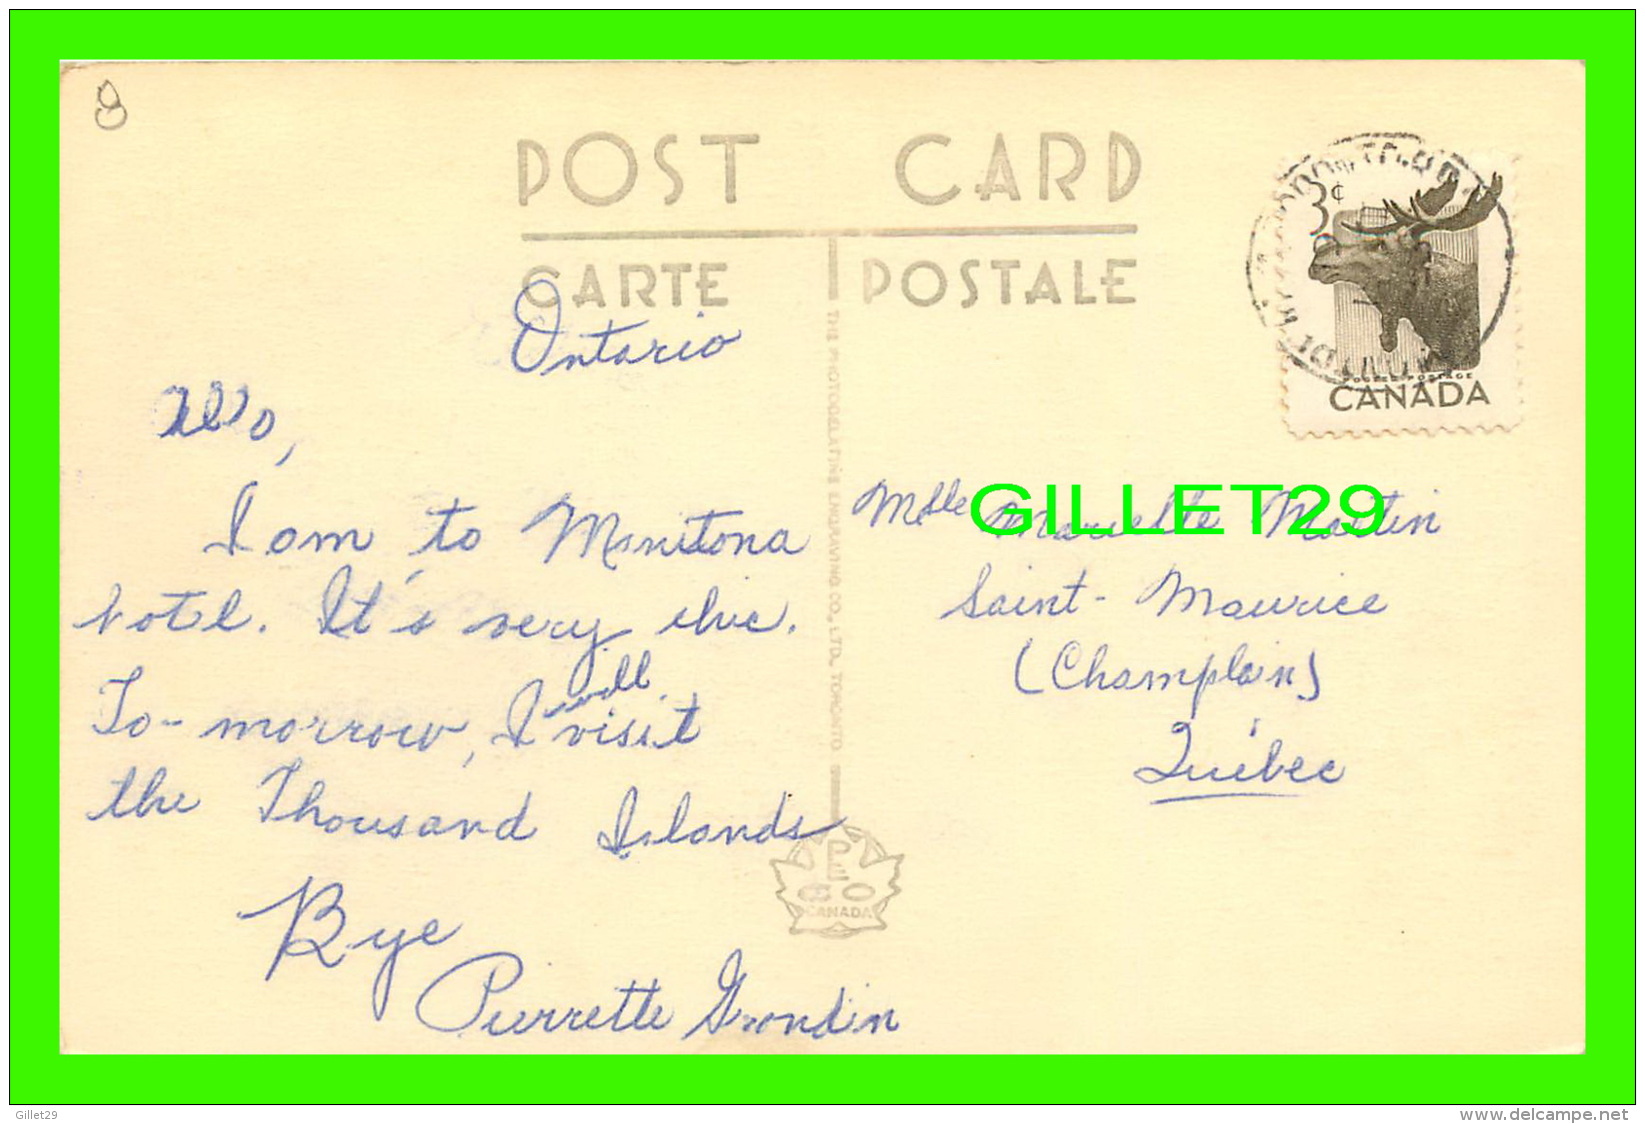 8
POST CARD
CARTE POSTALE
Ontario
Allo,
I am to Manitona
hotel. It's very chic.
To-morrow, I will visit
the Thousand Islands
Bye
Pierrette Grondin
THE PHOTOGELATINE ENGRAVING CO., LTD. TORONTO
PECO
CANADA
3¢
POSTES POSTAGE
CANADA
Mlle Marielle Martin
Saint-Maurice
(Champlain)
Québec
GILLET29
Gillet29
www.delcampe.net